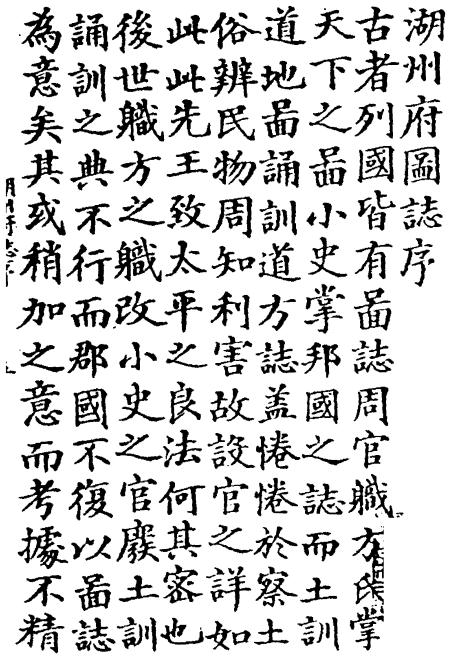 湖州府圖誌序
古者列國皆有啚誌周官軄方氏掌
天下之啚小史掌邦國之誌而土訓
道地啚誦訓道方誌蓋惓惓於察土
俗辨民物周知利害故設官之詳如
此此先王致太平之良法何其密也
後世軄方之軄改小史之官廢土訓
誦訓之典不行而郡國不復以啚誌
為意矣其或稍加之意而考據不精